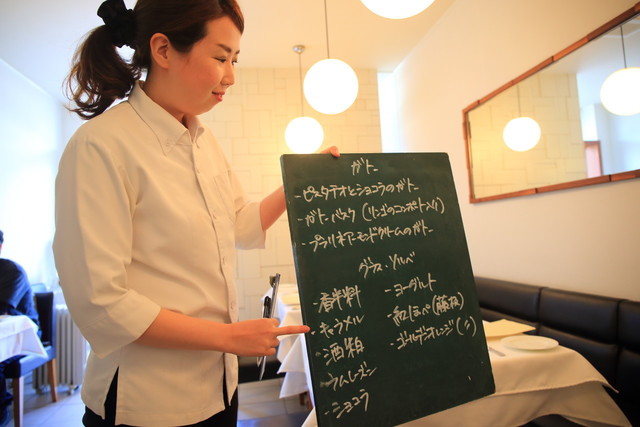 ガトー
-ピスタチオとショコラのガトー
-ガトーバスク(リンゴのコンポート入り)
-プラリネアーモンドクリームのガトー
グラス・ソルベ
-香辛料
-キャラメル
-酒粕
-ラムレーズン
-ショコラ
-ヨーグルト
-紅ほっぺ(藤枝)
-ゴールデンオレンジ(〃)